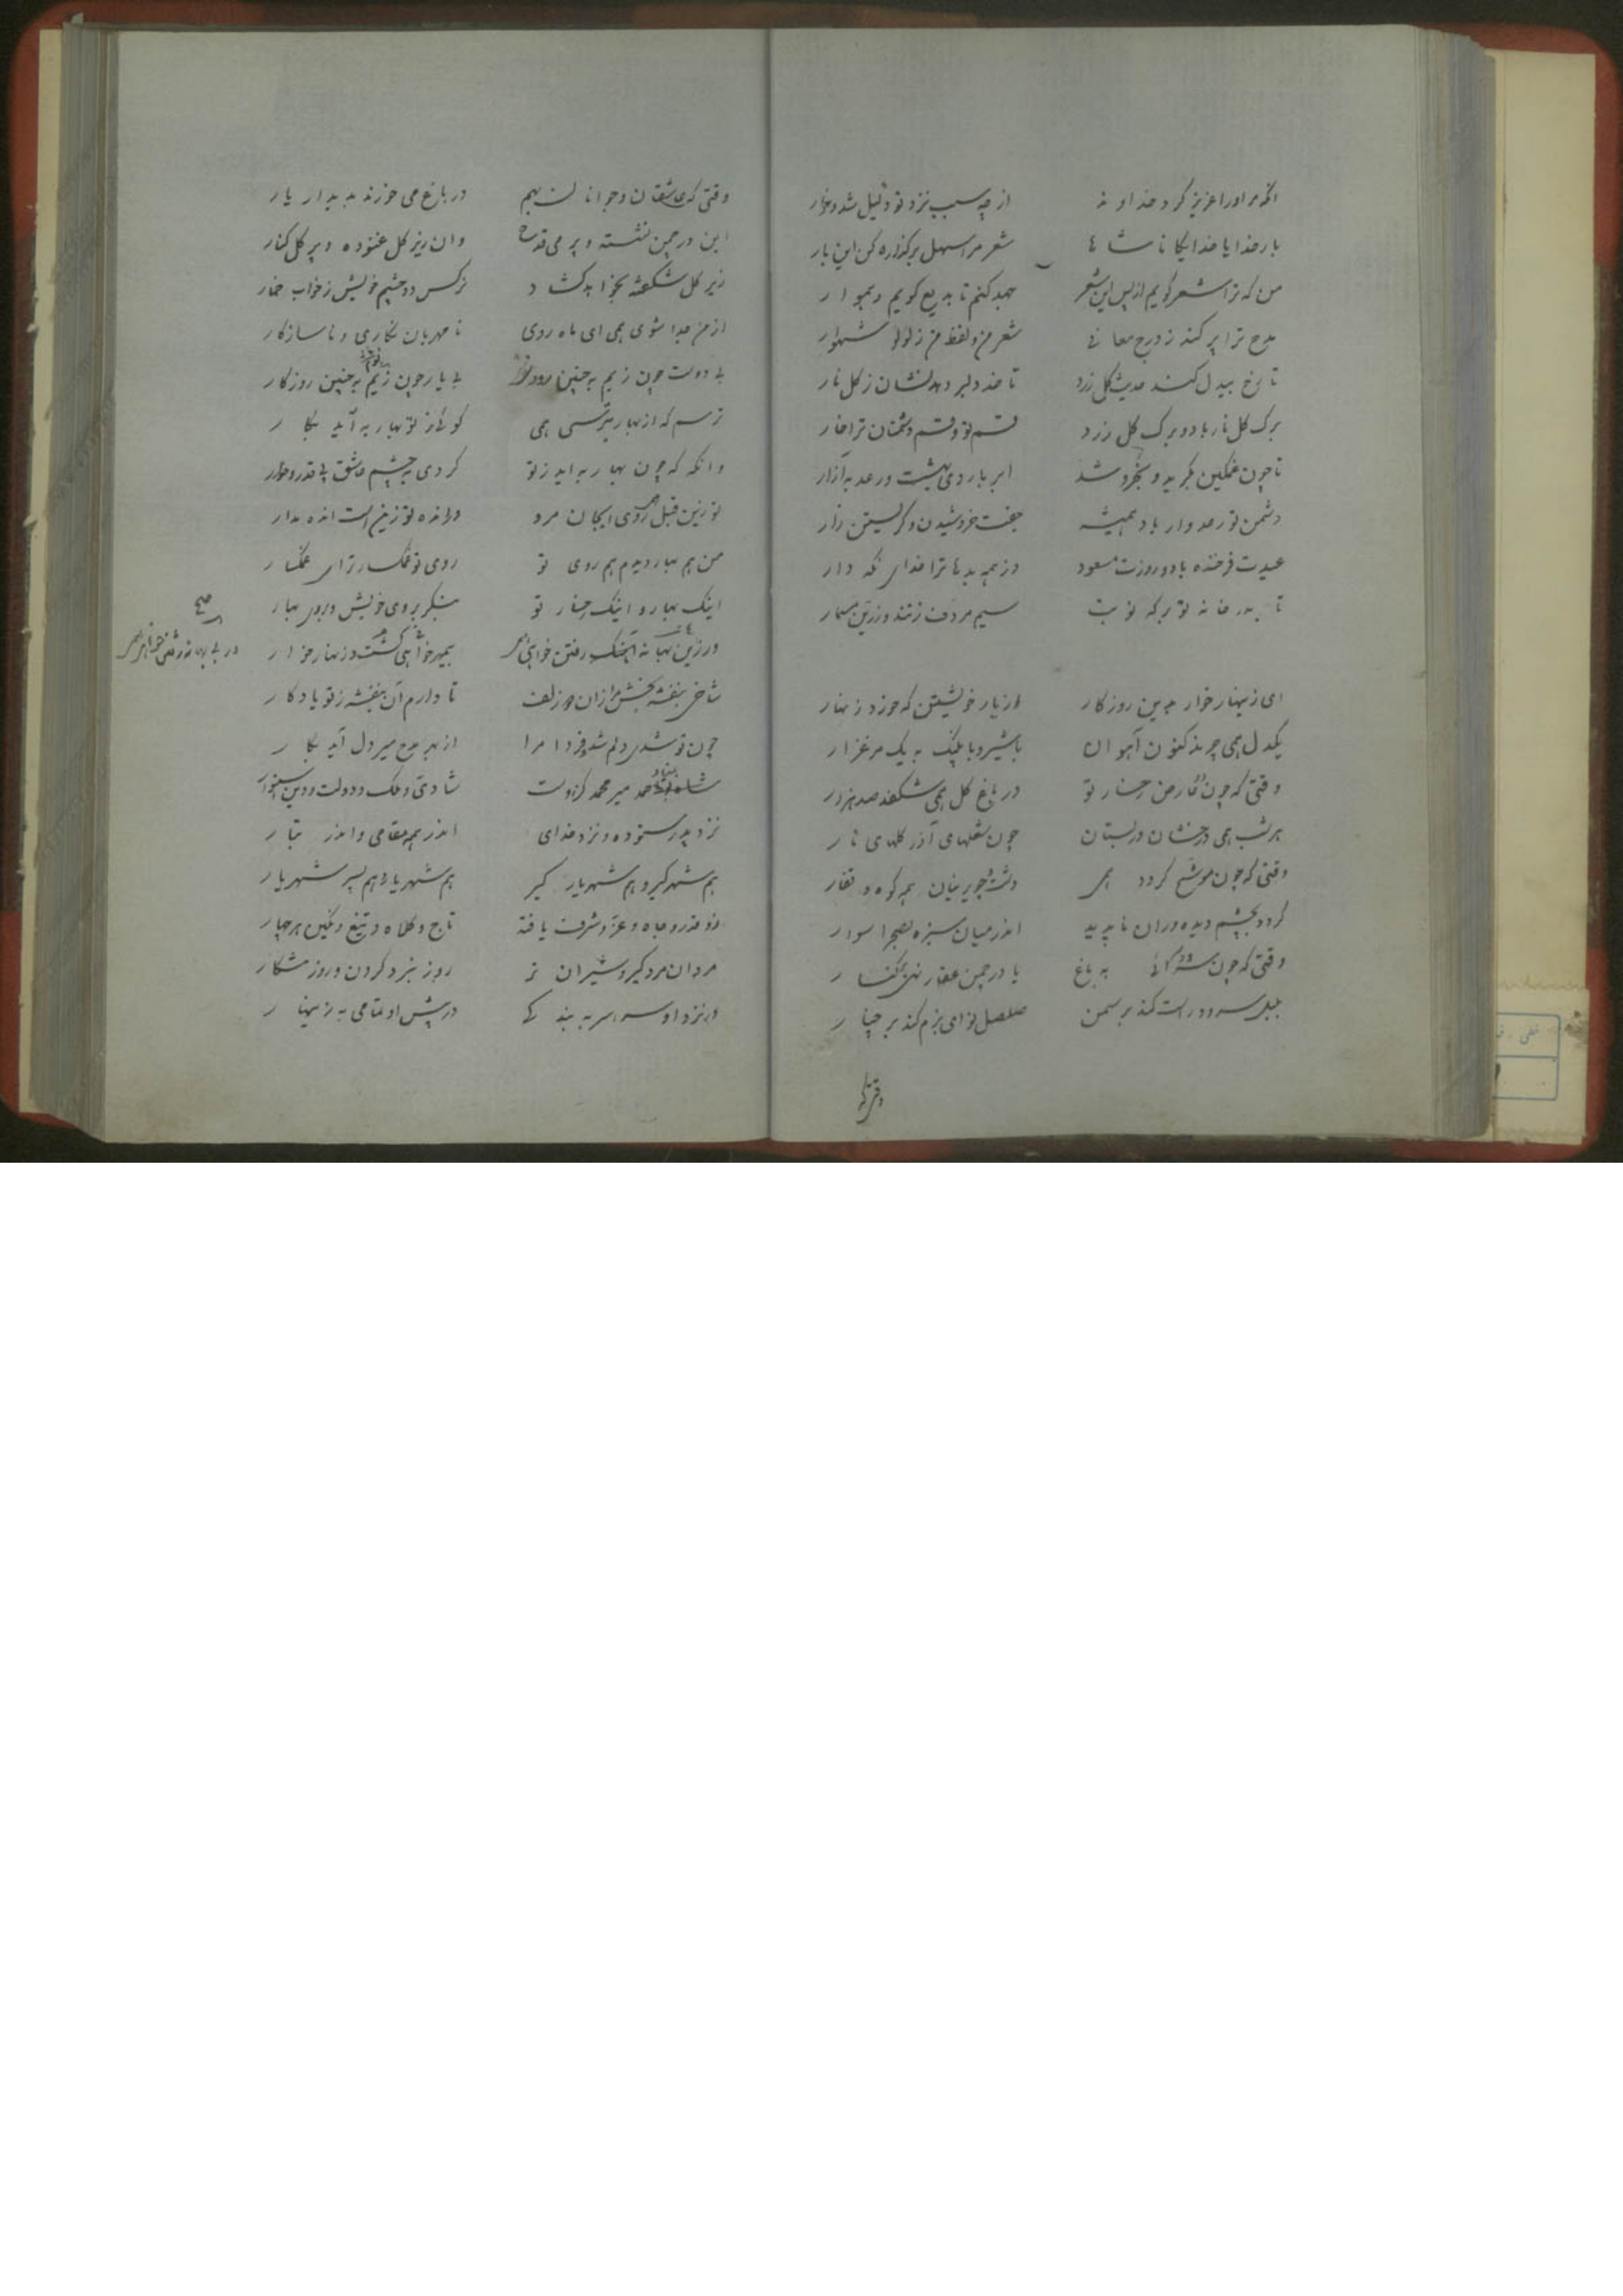 انکه مر اورا عزیز کرد خداوند از چه سبب نزد تو ذلیل شد و خوار
بار خدایا خدایکانا شاها شعر مرا سهل برکذاره کن این بار
من که ترا شعر کویم از پس این شعر جهد کنم تا بدیع کویم و هموار
مدح ترا پر کند ز درج معانی شعر من و لفظ من ز لولو شهوار
تا رخ بیدل کنند حدیث کل زرد تا خد دلبر دهد نشان ز کل نار
برک کل نار باد و برک کل زرد قسم تو و قسم دشمنان ترا خار
تا چون غمکین بکرید و بخروشد ابر بار دی بهشت و رعد به آزار
دشمن تو رعد وار باد همیشه جفت خروشیدن و کریستن زار
عیدت فرخنده باد و روزت مسعود وز همه بدها ترا خدای نکه دار
تا به در خانه تو بر که نوبت سیم مر دف زنند و زرین مسمار
ای زینهار خوار بدین روزکار از یار خویشتن که خورد زینهار
یکدل همی چرند کنون آهوان با شیر و با پلنک به یک مرغزار
وقتی که چون نکار من رخسار تو در باغ کل همی شکفد صد هزار
هر شب همی درخشان در بستان چون شعلهای آذر کلهای نار
وقتی که چون موشح کردد همی دشت چو پرنیان همه کوه و قفار
کردد بچشم دیده وران ناپدید اندر میان سبزه بصحرا سوار
وقتی که چون به باغ یا در چمن عقار نهی بر کنار
بلبل سرود راست کند بر سمن صلصل نوای بزم کند بر چنار
وقتی که
وقتی که عاشقان و جوانان بهم در باغ می خورند بدیدار یار
این در چمن نشسته و پر می قدح وان زیر کل غنوده و پر کل کنار
زیر کل شکفته بخواند کشاد نرکس دو چشم خویش ز خواب خمار
از من جدا شوی همی ای ماه روی نامهربان نکاری و ناسازکار
بی دوست چون زیم به چنین بی یار چون زیم به چنین روزکار
ترسم که از بهار بترسی همی کوئی ز تو بهار به آید بکار
وانکه که چون بهار به اید ز تو کردی به چشم عاشق بی قدر و خوار
تو زین قبل همی روی ایجان مرو ور انده تو زین است انده مدار
من هم بهار دیدم هم روی تو روی تو غمکسارتر ای غمکسار
اینک بهار و اینک رخسار تو بنکر بروی خویش و بروی بهار
ور زین بهانه آهنک رفتن خواهی همی خواهی کشت زینهار خوار
صح
شاخی بنفشه بخش مرا زان دو زلف تا دارم آن بنفشه ز تو یادکار
چون تو شدی دلم شد و فردا مرا از بهر مدح میر دل آید بکار
شاه احمد میر محمد کزوست شادی و ملک و دولت و دین
نزد پدر ستوده و نزد خدای اندر همه مقامی و اندر تبار
هم شهرکیر و هم شهریار کیر هم شهریار و هم پسر شهریار
زو قدر و جاه و عز و شرف یافته تاج و کلاه و تیغ و نکین هر چهار
مردان مرد کیر و شیران نر روز نبرد کردن و روز شکار
در نزد او سراسر به بندکی در پیش او تمامی به زینهار